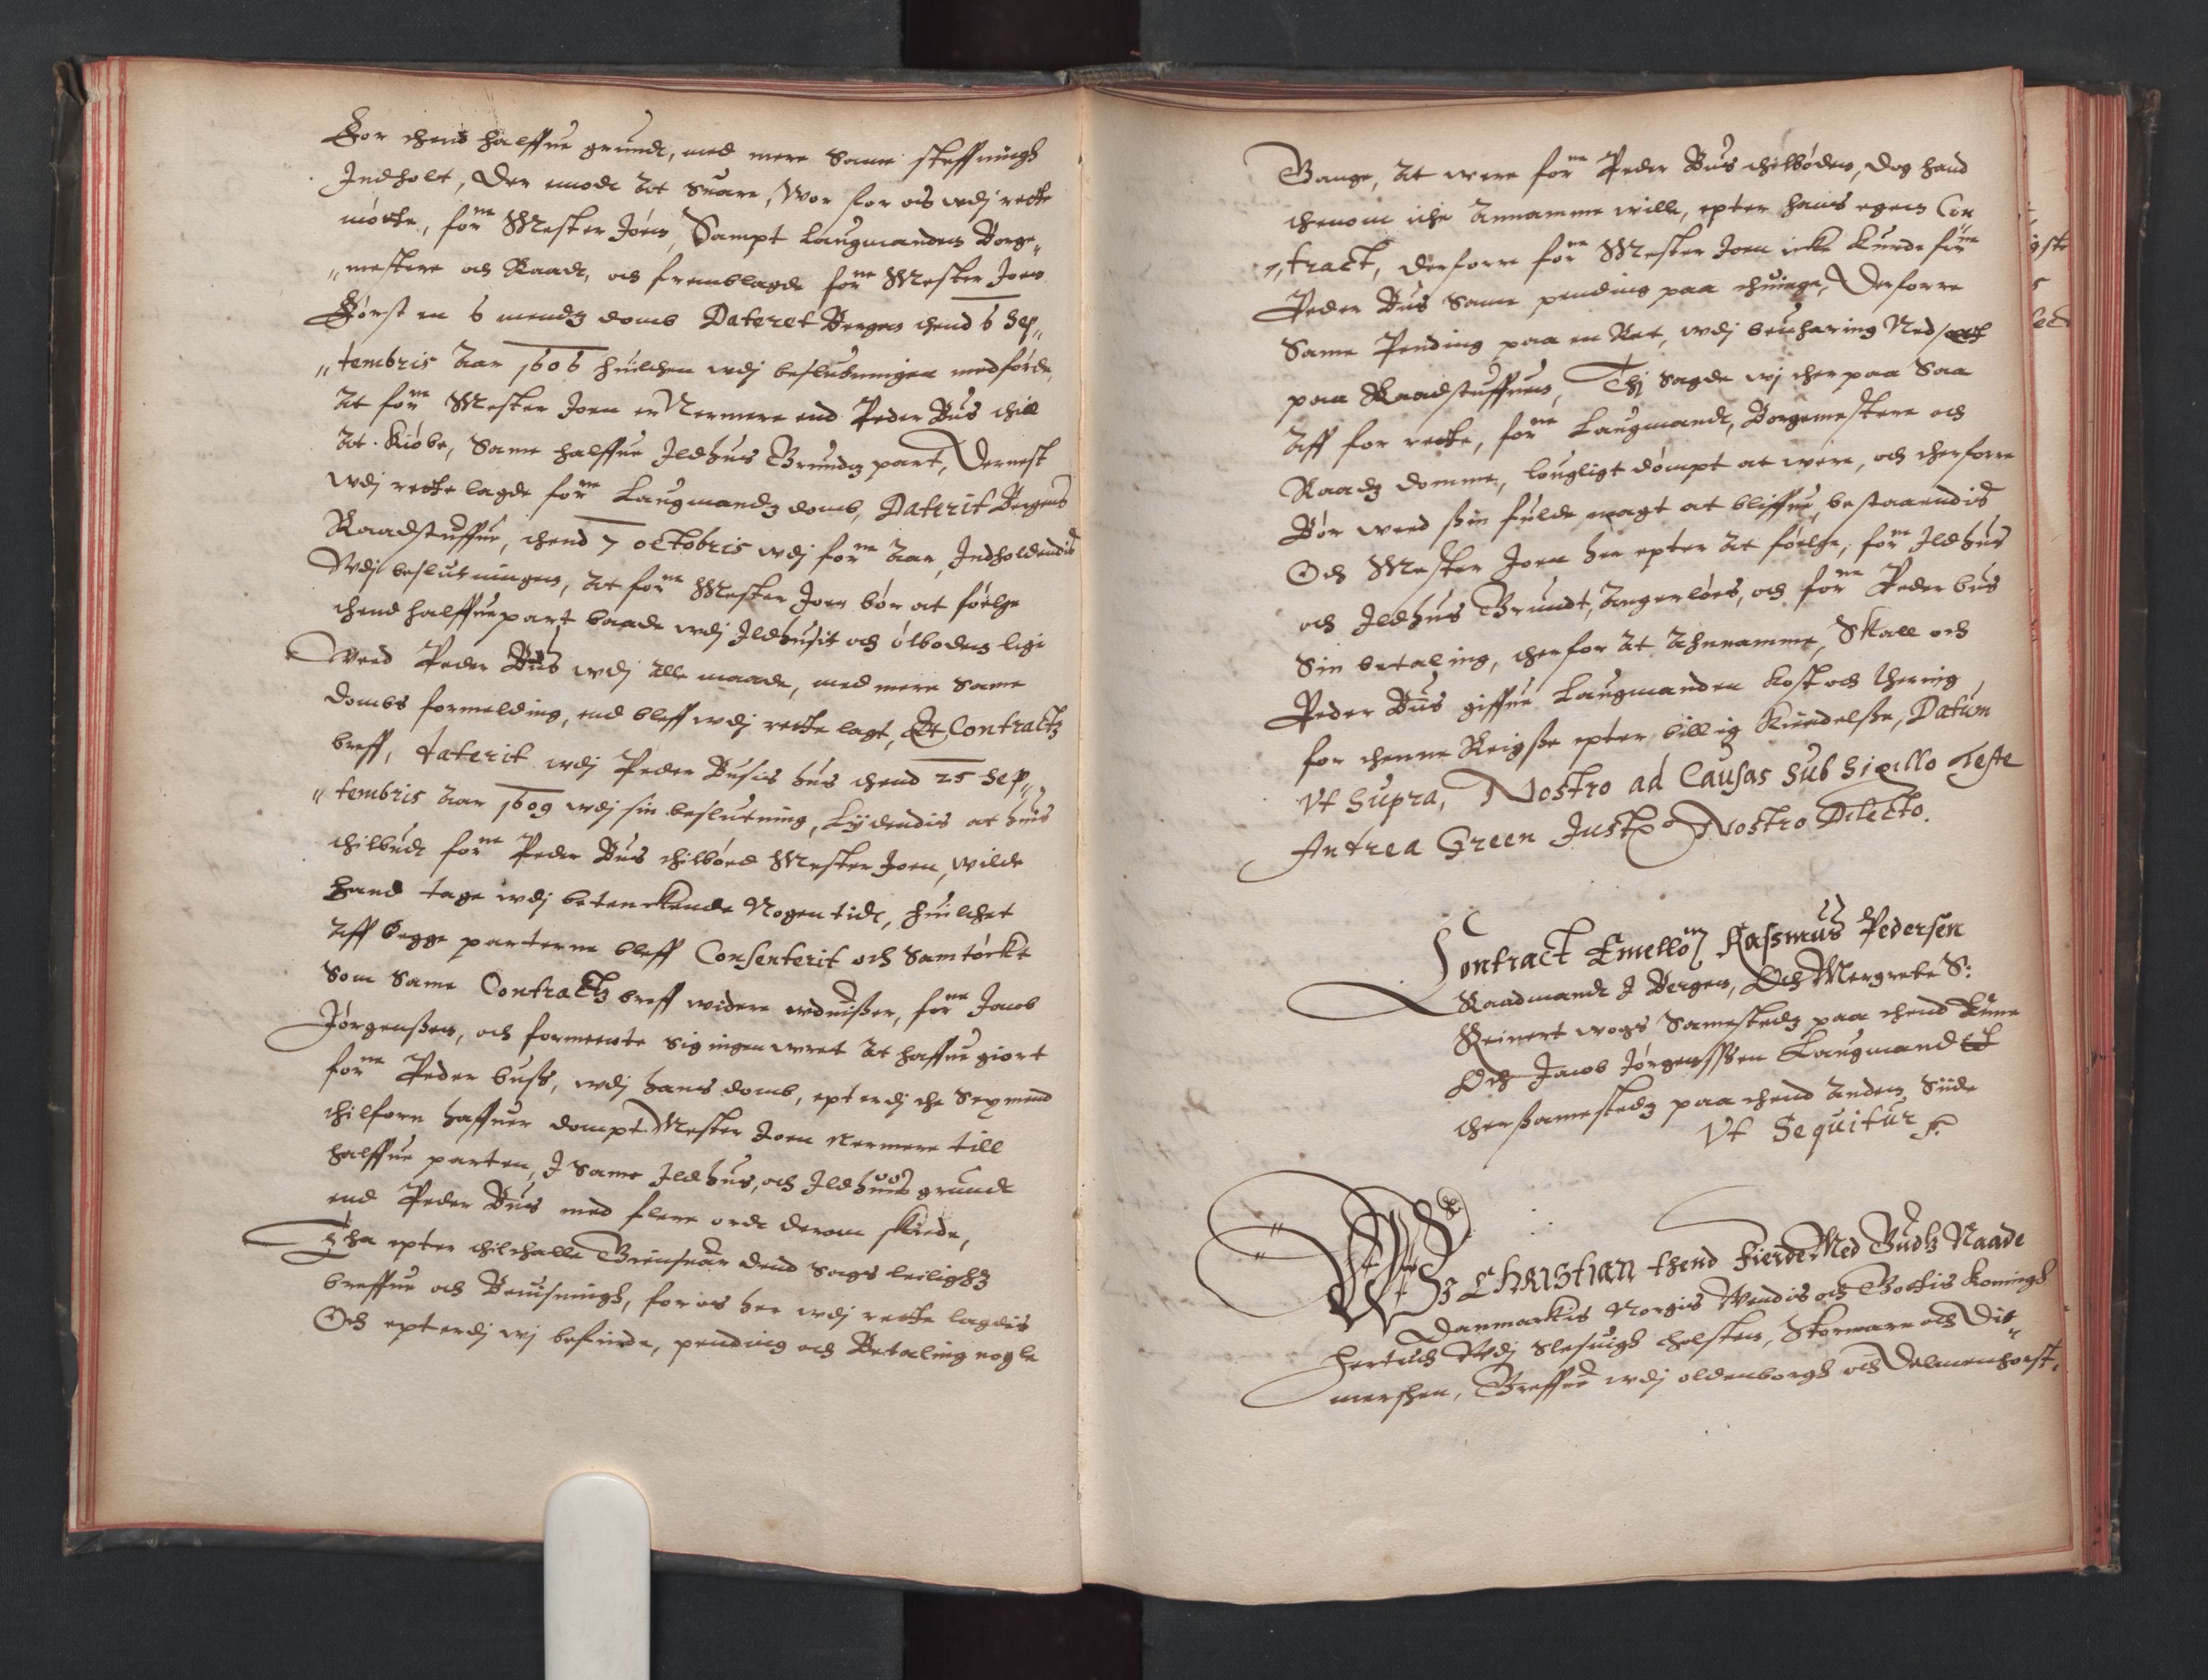 For thend halffue grundt, med mere Same steffningh
Indholt, Der emodt At Suare, Wor for os wdj rette
mótte, for:ne Mester Jóen, Sampt Laugmanden Borge„
„mestere och Raadt, och fremblagde for:ne Mester Joen
Fórst en 6 mendz domb Dateret Bergen thend 6 Sep„
„tembris Aar 1606 huilchen wdj beslutningen medfórde,
At for:ne Mester Joen er Nermere end Peder Bus thill
At Kióbe, Same halffue Ildhus Grundz part, Dernest
wdj rette lagde for:ne Laugmandz domb, Daterit Bergens
Raadstuffue, thend 7 octobris wdj for:ne Aar, Indholdendis
Wdj beslutningen, At for:ne Mester Joen bór at fóelge
thend halffuepart baade wdj Ildhusit och ólboden lige
Weed Peder Bus wdj Alle maade, med mere Same
dombs formelding, end bleff wdj rette lagt, Et Contractz
breff, daterit wdj Peder Busis hus thend 25 Sep„
„tembris Aar 1609 wdj sin beslutning, Lydendis at huis
thilbudt for:ne Peder Bus thilbóed Mester Joen, wilde
hand tage wdj betenckende Nogen tidt, huilchet
Aff begge parterne bleff Consenterit och Samtóckt
Som Same Contractz breff widere wduisser, for:ne Jacob
Jórgenssen, och formeente sig ingen wret At haffue giort
for:ne Peder buss, wdj hans domb, epterdj the Sexmend
thilforn haffuer dompt Mester Joen Nermere till
halffue parten, I Same Ildhus, och Ildhuus grundt
end Peder Bus med flere ordt derom skiede,
Tha epter thilthalle Giensuar dend Sags leilighz
breffue och Beuisningh, for os her wdj rette lagdis
Och epterdj wj befinde, pending och Betaling nogle
Gange, At were for:ne Peder Bus thilbóden, dog hand
thenom iche Annamme wille, epter hans egen Con
„tract, Derforre for:ne Mester Joen icke Kunde for:ne
Peder Bus Same pending paa thuinge, Derforre
Same Pending paa en Ret, wdj beuharing Ned
paa Raadstuffuen, Thj Sagde wj therpaa Saa
Aff for rette, for:ne Laugmandt, Borgemestere och
Raadz domme, lougligt dómpt at were, och therforre
Bór weed sin fulde magt at bliffue, bestaaendis
Och Mester Joen her epter At fóelge, for:ne Ildhus
och Ildhus Grundt, Angerlóes, och for:ne Peder bus
Sin betaling, therfor At Ahnnamme, Skall och
Peder Bus giffue Laugmanden Kost och thering
for thenne Reigsse epter billig Kiendelsse, Datum
Vt Supra, Nostro ad Causas Sub Sigillo Teste
Antrea Green Just:o Nostro Dilecto.
Contract Emellom Rassmus Pedersen
Raadmandt I Bergen, Och Mergrete S:
Reinert wogs Samestedz paa thend Eene
Och Jacob Jórgenssen Laugmand
thersamestedz paa thend Anden Siide
Vt Sequitur
Wii Christian thend Fierde Med Gudtz Naade
Danmarkis Norgis Wendis och Gottis Koningh
Hertuch Wdj Slesuigh Holsten, Stormarn och Dit„
mersken, Greffue wdj oldenborgh och Delmenhorst,